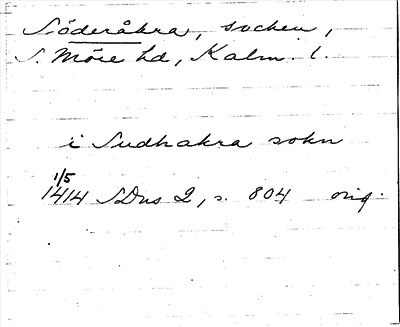 Söderåkra, socken,
S. Möre hd, Kalm. l.
i Sudhakra sokn
1/5
1414 SDns 2, s. 804 orig.